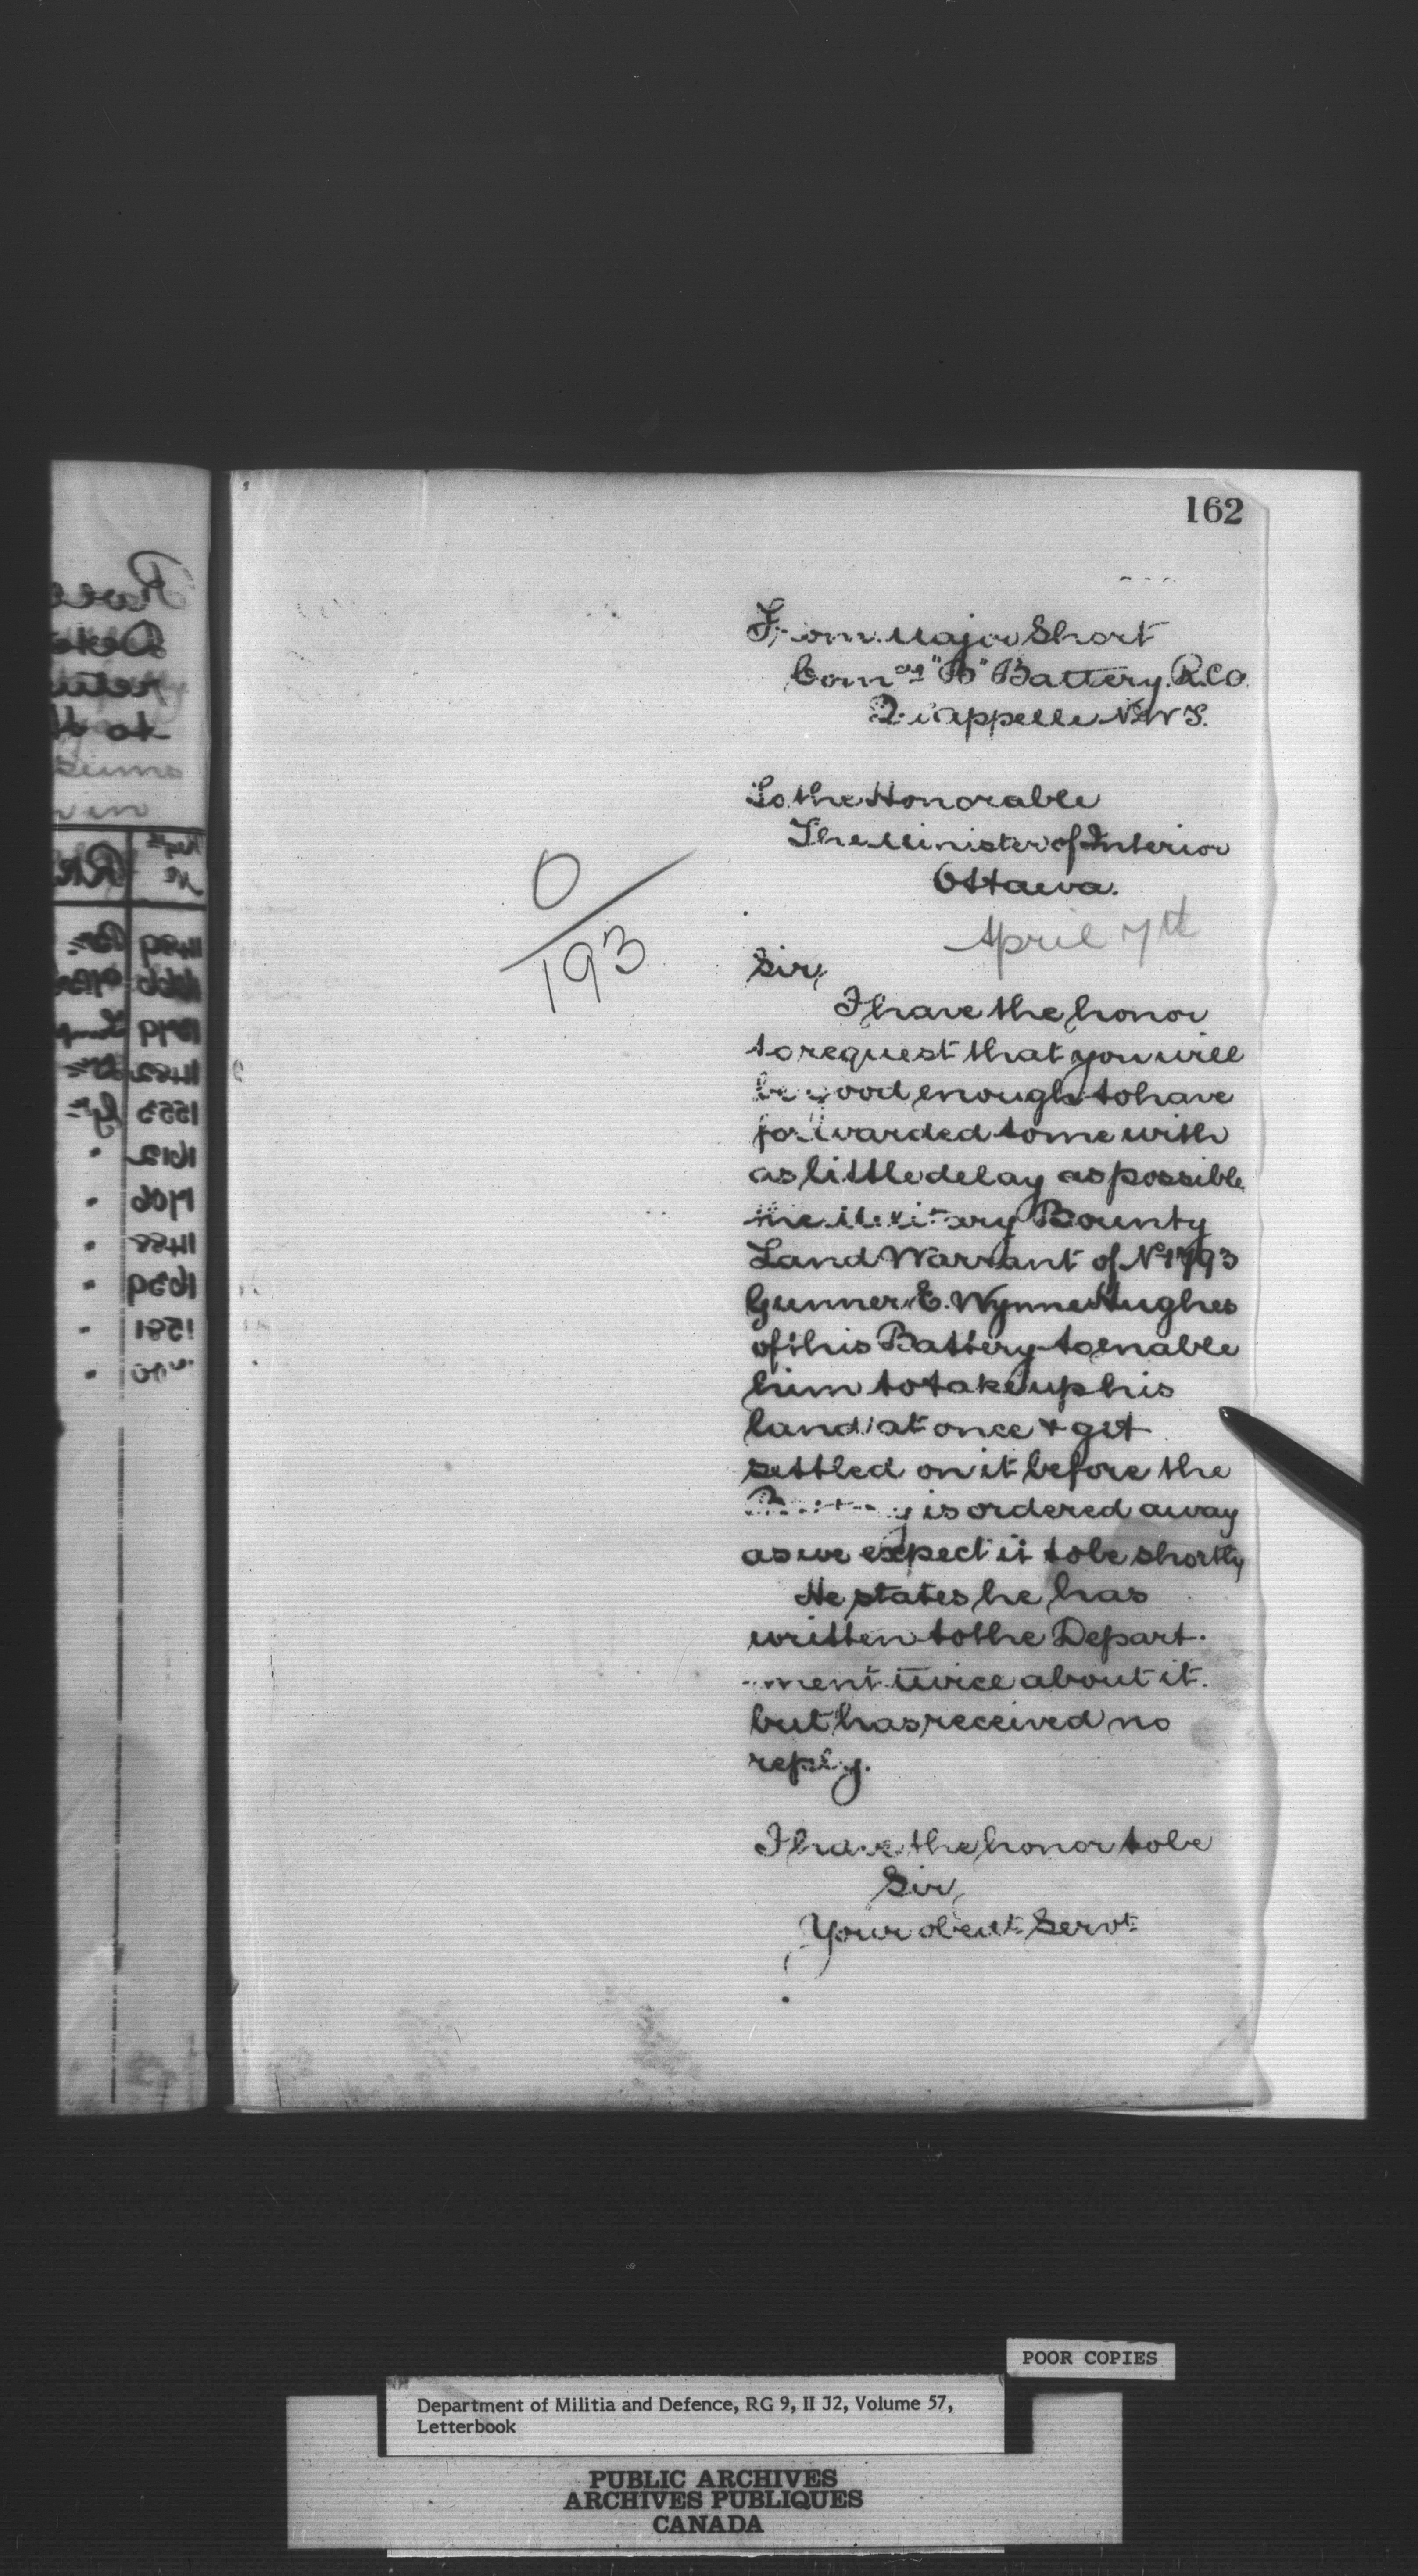 162
From Major Short
Com^dg "B" Battery. R.C.A.
Qu'appelle N.W.T.
To the Honorable
The Minister of Interior
Ottawa.
April 7th
0/193
Sir,
I have the honor
to request that you will
be good enough to have
forwarded to me with
as little delay as possible
the Military Bounty
Land Warrant of No 1793
Gunner E. Wynne Hughes
of this Battery to enable
him to take up his
land at once & get
settled on it before the
Battery is ordered away
as we expect it to be shortly
He states he has
written to the Depart-
-ment twice about it.
but has received no
reply.
I have the honor to be
Sir,
Your obedt Servt
POOR COPIES
Department of Militia and Defence, RG 9, II J2, Volume 57,
Letterbook
PUBLIC ARCHIVES
ARCHIVES PUBLIQUES
CANADA